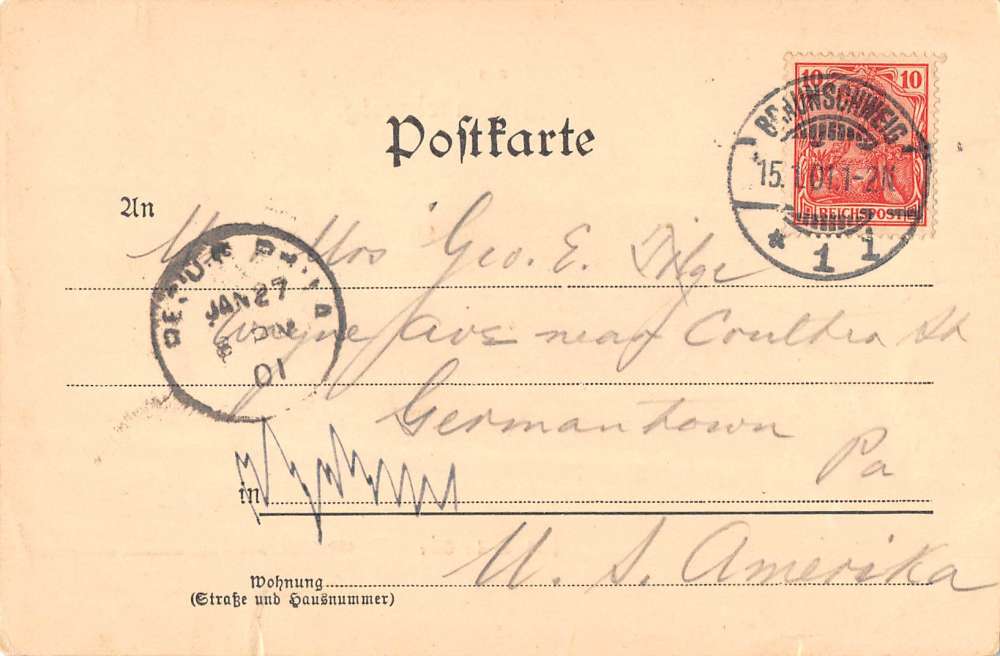 Postkarte
10 10
BRAUNSCHWEIG
15.1.01.1-2N
* 1 1
REICHSPOST
An
Geo. E.
PHILA
JAN 27
01
Wayne Ave near Coulter St
Germantown
Pa
in
U. S. Amerika
Wohnung
(Straße und Hausnummer)